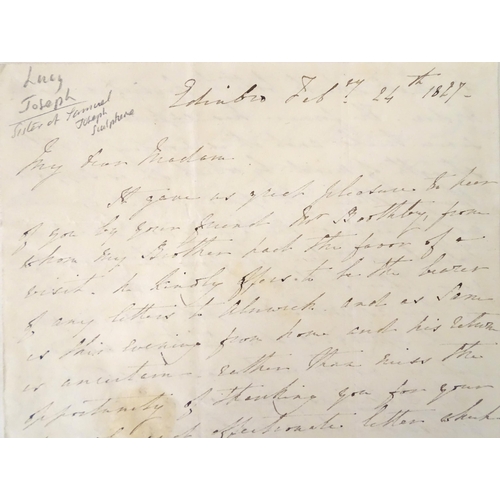 Lucy
Joseph
Sister of Samuel
Joseph
Sculptor
Edinbr Feby 24th 1827-
My dear Madam
It gave us great pleasure to hear
of you by your friend Mr Boothby, from
whom my Brother had the favor of a
visit. he kindly offers to be the bearer
of any letters to Alnwick, and as Sam
is this evening from home and his return
is uncertain - rather than miss the
opportunity of thanking you for your
affectionate letter